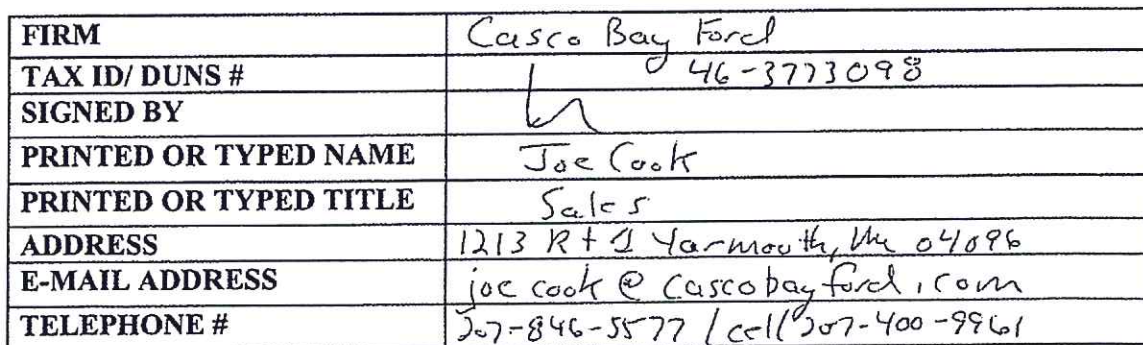 FIRM Casco Bay Ford
TAX ID/ DUNS # 46-3773098
SIGNED BY
PRINTED OR TYPED NAME Joe Cook
PRINTED OR TYPED TITLE Sales
ADDRESS 1213 Rt 1 Yarmouth, Me 04096
E-MAIL ADDRESS joecook@cascobayford.com
TELEPHONE # 207-846-5577 / cell 207-400-9961